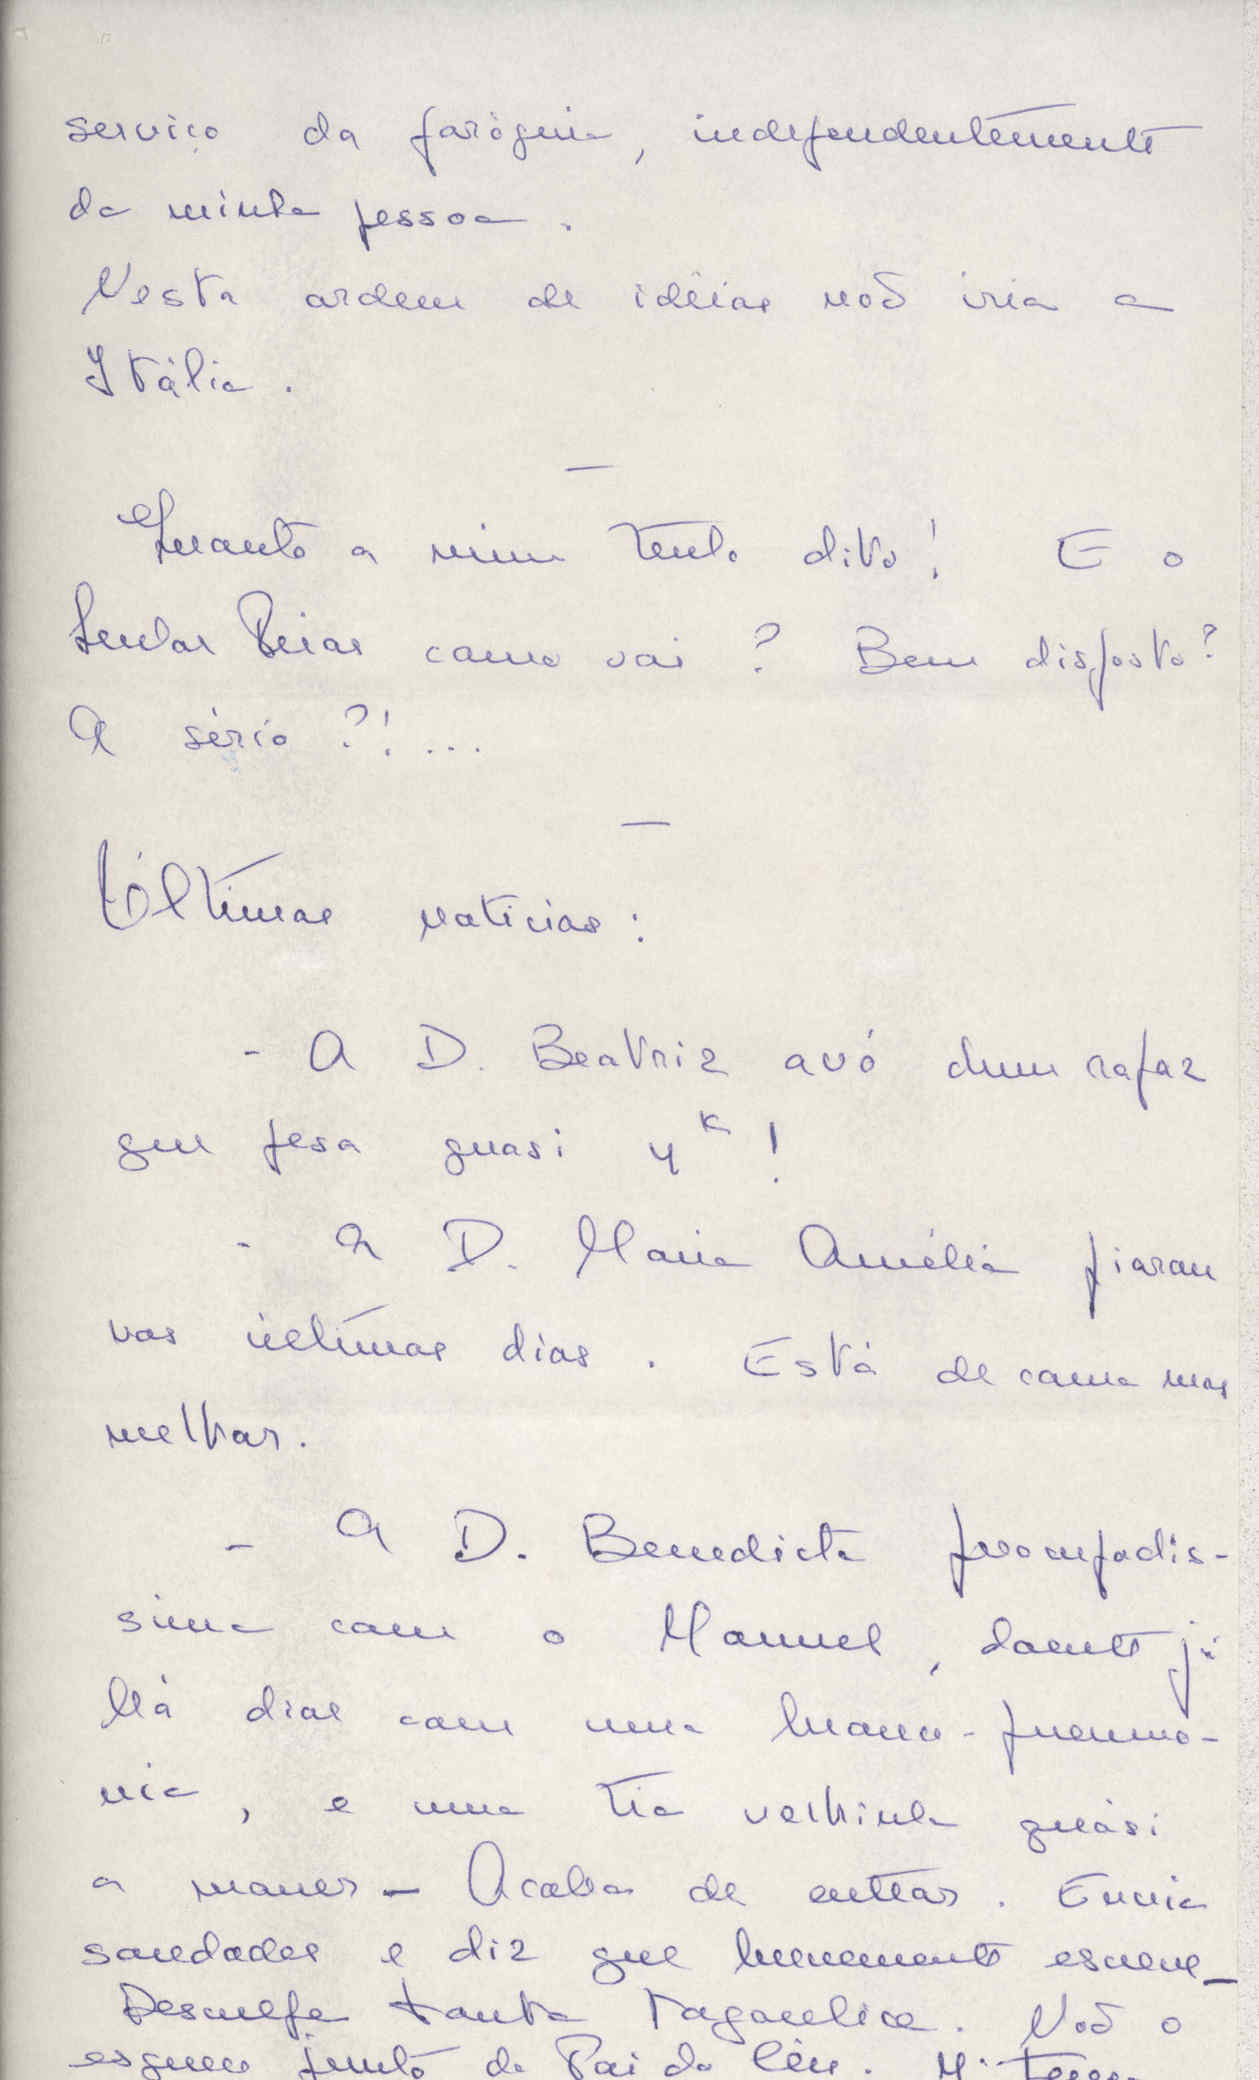 serviço da paróquia, independentemente
da minha pessoa.
Nesta ordem de idéias não iria a
Itália.
—
Quanto a mim tenho dito! E o
Senhor Prior como vai? Bem disposto?
A sério?!...
—
Últimas notícias:
- A D. Beatriz avó dum rapaz
que pesa quasi 4ᵏ!
- A D. Maria Amélia piorou
nos últimos dias. Está de cama mas
melhor.
- A D. Benedicta preocupadís-
sima com o Manuel, doente já
há dias com uma bronco-pneumo-
nia, e uma tia velhinha quási
a morrer - Acaba de entrar. Envia
saudades e diz que brevemente escreve_
Desculpe tanta tagarelice. Não o
esqueço junto do Pai do Céu. Mª Teresa